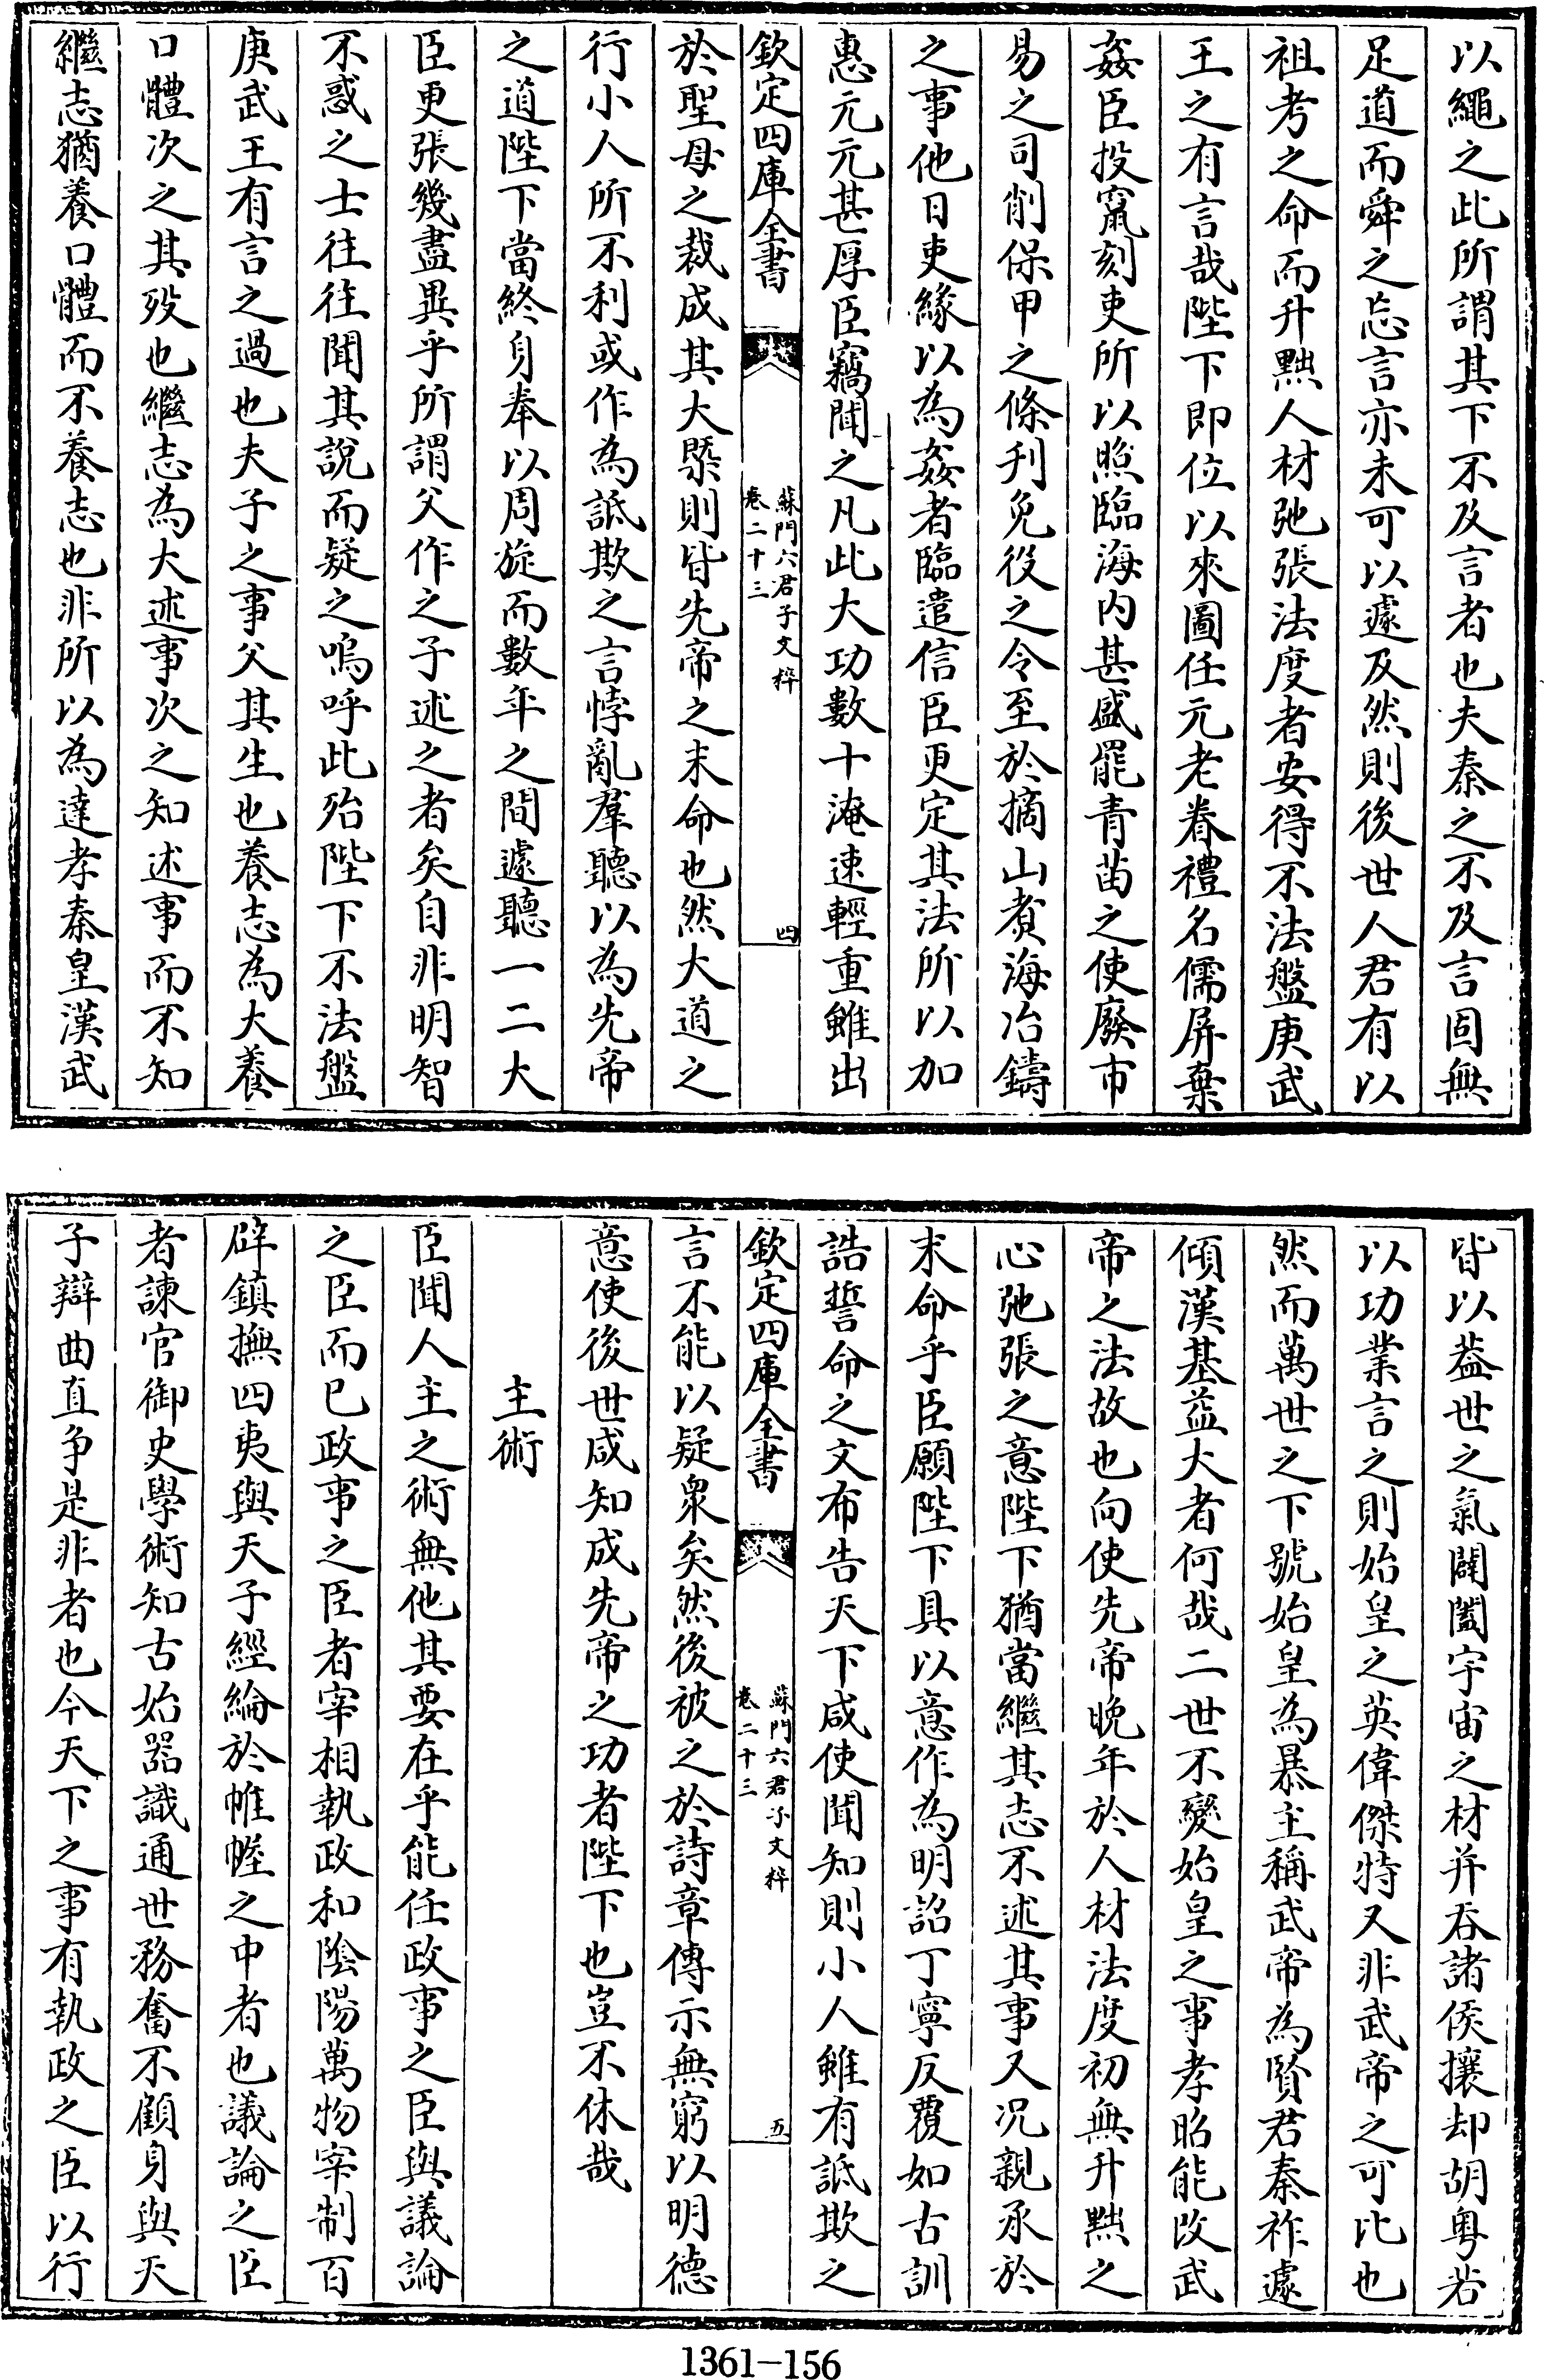 以繩之此所謂其下不及言者也夫秦之不及言固無
足道而舜之忘言亦未可以遽及然則後世人君有以
祖考之命而升黜人材弛張法度者安得不法盤庚武
王之有言哉陛下即位以來圖任元老眷禮名儒屏棄
姦臣投竄刻吏所以照臨海内甚盛罷青苗之使廢市
易之司削保甲之條刋免役之令至於摘山煑海冶鑄
之事他日吏緣以為姦者臨遣信臣更定其法所以加
惠元元甚厚臣竊聞之凡此大功數十淹速輕重雖出
欽定四庫全書
蘇門六君子文粹
卷二十三
四
於聖母之裁成其大槩則皆先帝之末命也然大道之
行小人所不利或作為詆欺之言悖亂羣聽以為先帝
之道陛下當終身奉以周旋而數年之間遽聽一二大
臣更張幾盡異乎所謂父作之子述之者矣自非明智
不惑之士往往聞其說而疑之嗚呼此殆陛下不法盤
庚武王有言之過也夫子之事父其生也養志為大養
口體次之其歿也繼志為大述事次之知述事而不知
繼志猶養口體而不養志也非所以為達孝秦皇漢武
皆以葢世之氣闢闔宇宙之材并吞諸侯攘却胡粤若
以功業言之則始皇之英偉傑特又非武帝之可比也
然而萬世之下號始皇為暴主稱武帝為賢君秦祚遽
傾漢基益大者何哉二世不變始皇之事孝昭能改武
帝之法故也向使先帝晚年於人材法度初無升黜之
心弛張之意陛下猶當繼其志不述其事又况親承於
末命乎臣願陛下具以意作為明詔丁寧反覆如古訓
誥誓命之文布告天下咸使聞知則小人雖有詆欺之
欽定四庫全書
蘇門六君子文粹
卷二十三
五
言不能以疑衆矣然後被之於詩章傳示無窮以明德
意使後世咸知成先帝之功者陛下也豈不休哉
主術
臣聞人主之術無他其要在乎能任政事之臣與議論
之臣而已政事之臣者宰相執政和陰陽萬物宰制百
辟鎮撫四夷與天子經綸於帷幄之中者也議論之臣
者諫官御史學術知古始器識通世務奮不顧身與天
子辯曲直争是非者也今天下之事有執政之臣以行
1361-156